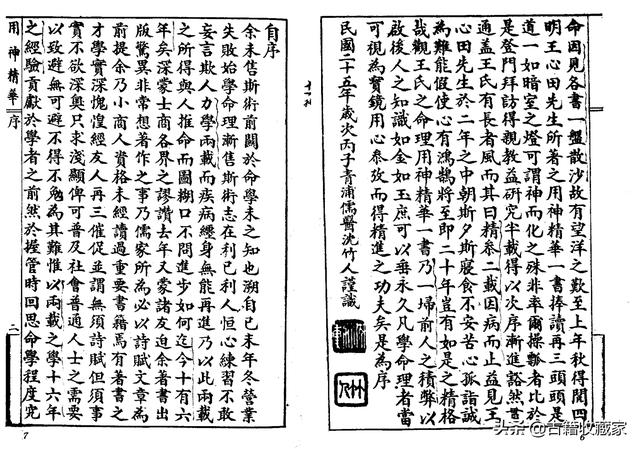 命因見各書一盤散沙故有望洋之歎至上年秋得閱四
明王心田先生所著之用神精華一書捧讀再三頭頭是
道一如暗室之燈可謂神而化之殊非率爾操觚者比於
是登門拜訪得親教益研究半載得以次序漸進豁然貫
通蓋王氏有長者風而其曰精參二載因病而止益見王
心田先生於二年之中朝斯夕斯寢食不安苦心孤詣誠
為難能假使心有鴻鵠將至即二十年豈有如是之精格
哉觀王氏之命理用神精華一書乃一埽前人之積弊以
啟後人之知識如金如玉庶可以垂永久凡學命理者當
可視為寶鏡用心參攷而得精進之功夫矣是為序
民國二十五年歲次丙子青浦儒醫沈竹人謹識
6
自序
余未售斯術前關於命學未之知也溯自己未年冬營業
失敗始學命理漸售斯術志在利已利人恒心練習不敢
妄言欺人力學兩載而疾病纏身無能再進乃以此兩載
之所得與人推命而圖糊口不問進步如何迄今十有六
年矣深蒙士商各界之謬讚去年又蒙諸友迫余著書出
版驚異非常想著作之事乃儒家所為必以詩賦文章為
前提余乃小商人資格未經讀過重要書籍焉有著書之
才學實深愧惶經友人再三催促並謂無須詩賦但須事
實不欲深奧只求淺顯俾可普及社會普通人士之需要
以致避無可避不得不勉為其難惟以兩載之學十六年
之經驗貢獻於學者之前然於握管時回思命學程度究
用神精華 序 二
7
头条 @古籍收藏家